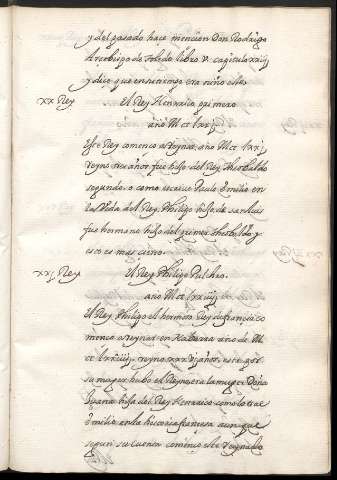 y del pasado hace mencion Don Rodrigo
Arcobispo de Toledo libro V. capitulo xxiiij
y dice que en su tiempo era niño este.
xx Rey El Rey Henrrico primero
año M cc lxxj.
Este Rey començo a Reynar, año M cc lxxi
reyno tres años fue hijo del Rey Theobaldo
segundo. o como escrive Paulo Emilio en
la Vida del Rey Philipo hijo de san Luis
fue hermano hijo del primer Theobaldo y
esto es mas cierto.
xxj Rey El Rey Philipo Pulchro.
año M cc lxxiiij
El Rey Philipo el hermoso Rey de Francia co
menço a reynar en Nabarra año de M
cc lxxiiij, reyno xxxvj años, este por
su muger hubo el Reyno era la muger Doña
Juana hija del Rey Henrrico como lo trae
Emilio en la historia francesa aunque
segun su cuenta començo este Reynado